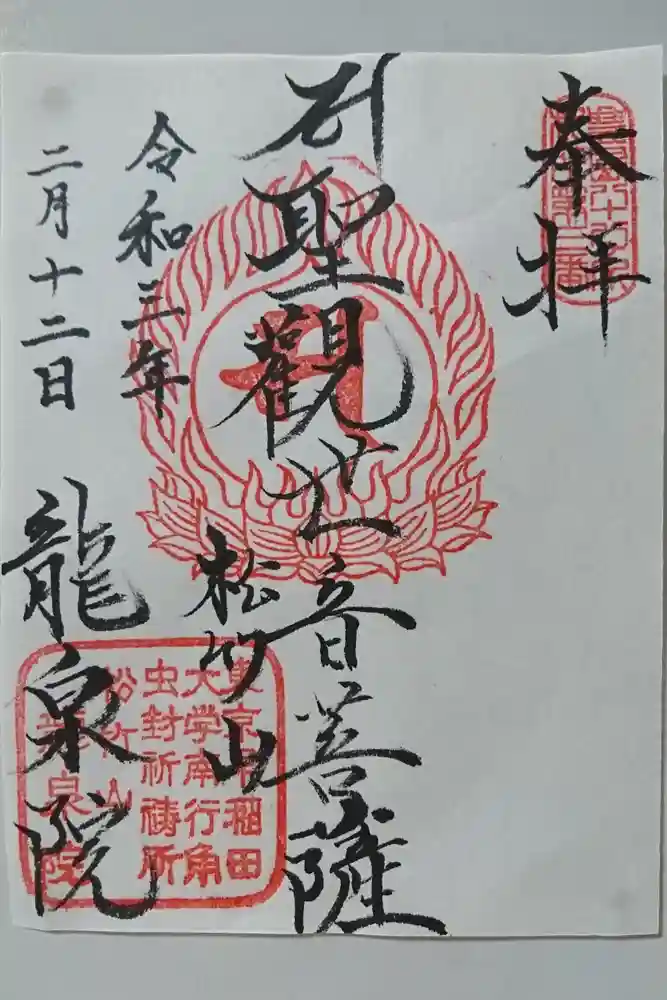 奉拝
聖觀世音菩薩
令和三年
二月十二日
松竹山
龍泉院
東京早稲田
大学南行角
虫封祈祷所
松竹山
龍泉院